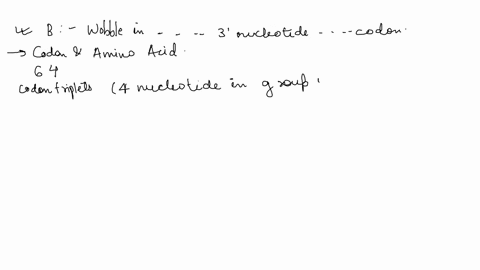 B :- Wobble in - - - - 3' nucleotide - - - - codon.
→ Codon & Amino Acid.
64
codon triplets (4 nucleotide in group